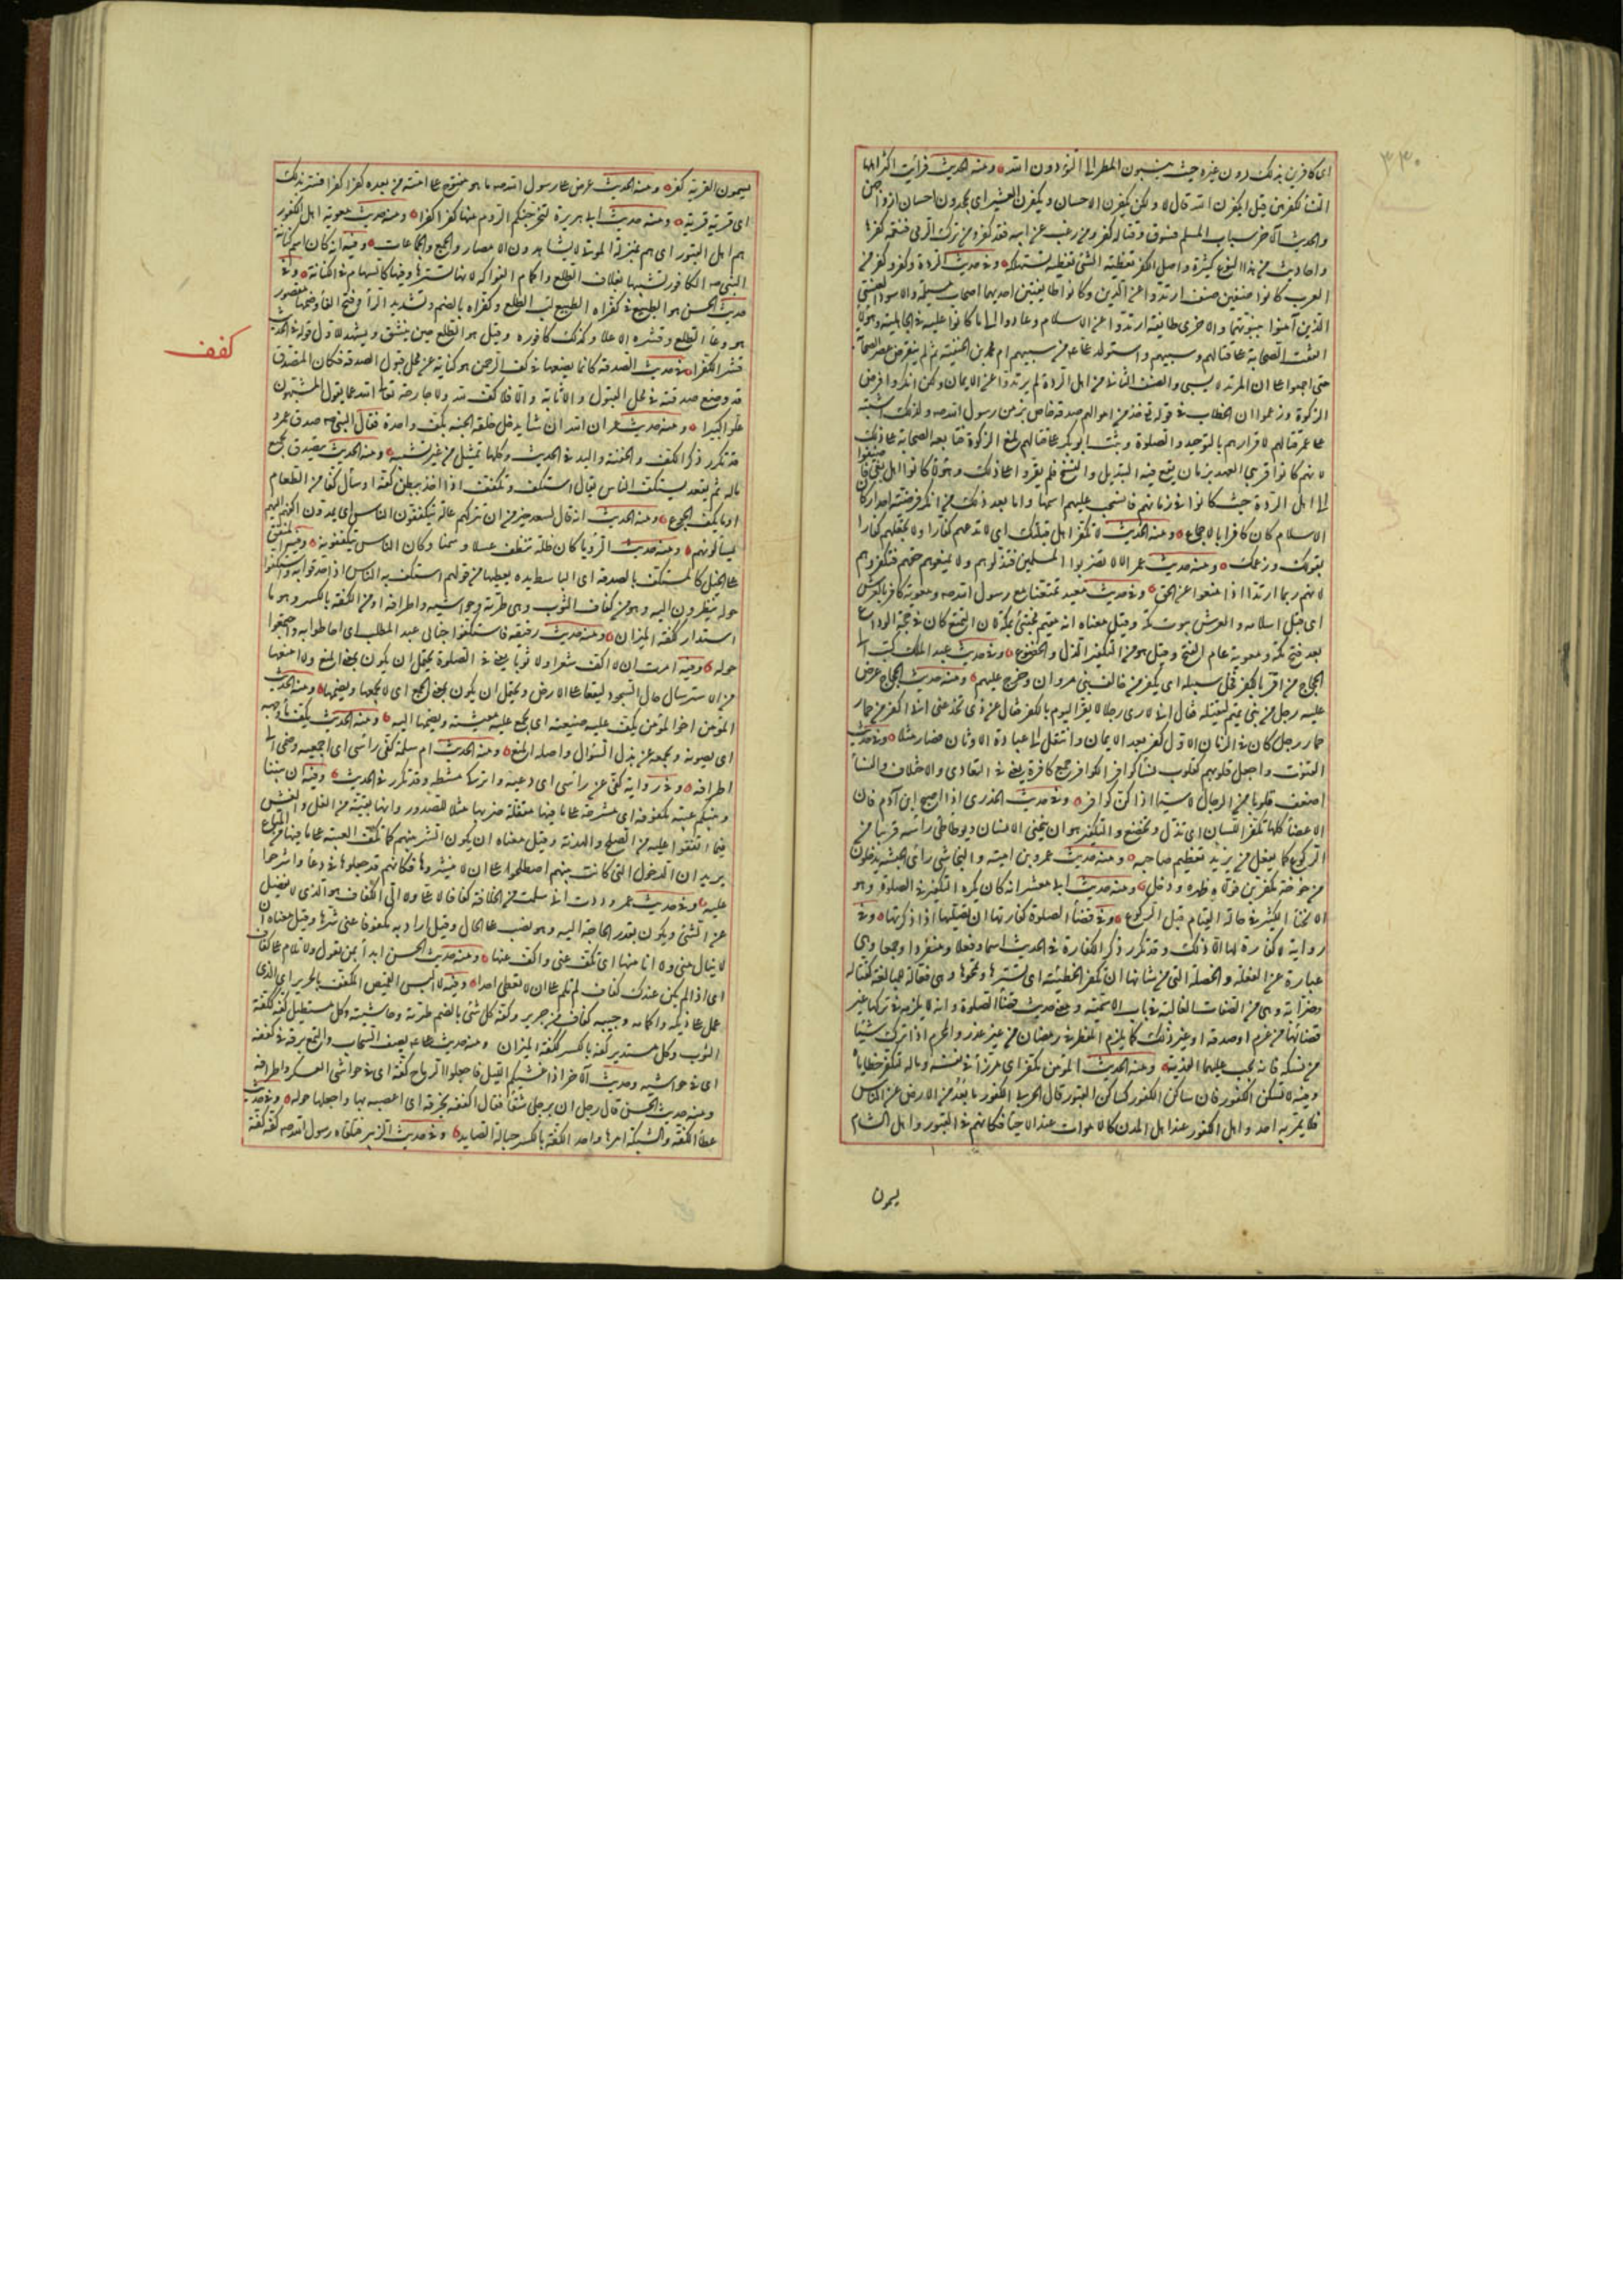 ٣٣٠
اى كافرين بذلك دون غيره حيث ينسبون المطر الى النوء دون الله ومنه الحديث فرأيت اكثر اهلها
النساء لكفرهن قيل ايكفرن بالله قال لا ولكن يكفرن الاحسان ويكفرن العشير اى يجحدون احسان ازواجهن
والحديث الآخر سباب المسلم فسوق وقتاله كفر ومن رغب عن ابيه فقد كفر ومن ترك الرمى فنعمة كفرها
واحاديث من هذا النوع كثيرة واصل الكفر تغطية الشئ تغطية تستهلكه وفى حديث الردة وكفر من كفر من
العرب كانوا صنفين صنف ارتدوا عن الدين وكانوا طايفتين احديهما اصحاب مسيلمة والاسود العنسى
الذين آمنوا بنبوتهما والاخرى طايفة ارتدوا عن الاسلام وعادوا الى ما كانوا عليه فى الجاهلية وهؤلاء
اتفقت الصحابة على قتالهم وسبيهم واستولد على من سبيهم ام محمد بن الحنفية ثم لم ينقرض عصر الصحابة
حتى اجمعوا على ان المرتد لا يسبى والصنف الثانى من اهل الردة لم يرتدوا عن الايمان ولكن انكروا فرض
الزكوة وزعموا ان الخطاب فى قوله خذ من اموالهم صدقة خاص بزمن رسول الله صه ولذلك اشتبه
على عمر قتالهم لاقرارهم بالتوحيد والصلوة وثبت ابو بكر على قتالهم لمنع الزكوة فتابعه الصحابة على ذلك
لانهم كانوا قريبى العهد بزمان يقع فيه التبديل والنسخ فلم يقروا على ذلك وهؤلاء كانوا اهل بغى فاضيفوا
الى اهل الردة حيث كانوا فى زمانهم فانسحب عليهم اسمها واما بعد ذلك فمن انكر فرضية احد اركان
الاسلام كان كافرا بالاجماع ومنه الحديث لا تكفر اهل قبلتك اى لا تدعهم كفارا ولا تجعلهم كفارا
بقولك وزعمك ومنه حديث عمر الا لا تضربوا المسلمين فتذلوهم ولا تمنعوهم حقهم فتكفروهم
لانهم ربما ارتدوا اذا منعوا عن الحق وفى حديث سعيد تمتعنا مع رسول الله صه ومعوية كافر بالعرش
اى قبل اسلامه والعرش بيوت مكة وقيل معناه انه مقيم مختبئ بمكة لان التمتع كان فى حجة الوداع
بعد فتح مكة ومعوية عام الفتح وقيل هو من التكفير الذل والخضوع وفى حديث عبد الملك كتب الى
الحجاج من اقر بالكفر فخل سبيله اى بكفر من خالف بنى مروان وخرج عليهم ومنه حديث الحجاج عرض
عليه رجل من بنى تميم ليقتله فقال انى لارى رجلا لا يقر اليوم بالكفر فقال عن دمى تخدعنى انى اكفر من حمار
حمار رجل كان فى الزمان الاول كفر بعد الايمان وانتقل الى عبادة الاوثان فصار مثلا وفى حديث
القنوت واجعل قلوبهم كقلوب نساء كوافر الكوافر جمع كافرة يعنى فى التعادى والاختلاف والنساء
اضعف قلوبا من الرجال لا سيما اذا كن كوافر وفى حديث الخدرى اذا اصبح ابن آدم فان
الاعضاء كلها تكفر للسان اى تذل وتخضع والتكفير هو ان ينحنى الانسان ويطأطئ رأسه قريبا من
الركوع كما يفعل من يريد تعظيم صاحبه ومنه حديث عمرو بن امية والنجاشى رأى الحبشة يدخلون
من خوخة مكفرين فولاه ظهره ودخل ومنه حديث ابى معشر انه كان يكره التكفير فى الصلوة وهو
الانحناء الكثير فى حالة القيام قبل الركوع وفى قضاء الصلوة كفارتها ان تصليها اذا ذكرتها وفى
رواية لا كفارة لها الا ذلك وقد تكرر ذكر الكفارة فى الحديث اسما وفعلا ومنفردا وجمعا وهى
عبارة عن الفعلة والخصلة التى من شانها ان تكفر الخطيئة اى تسترها وتمحوها وهى فعالة للمبالغة كقتالة
وضرابة وهى من الصفات الغالبة فى باب الاسمية ومعنى حديث قضاء الصلوة انه لا يلزمه فى تركها غير
قضائها من غرم او صدقة او غير ذلك كما يلزم المفطر فى رمضان من غير عذر والمحرم اذا ترك شيئا
من نسكه فانه يجب عليهما الفدية ومنه الحديث المؤمن مكفر اى مرزأ فى نفسه وماله لتكفر خطاياه
وفيه لا تسكن الكفور فان ساكن الكفور كساكن القبور قال الحربى الكفور ما بعد من الارض عن الناس
فلا يمر به احد واهل الكفور عند اهل المدن كالاموات عند الاحياء فكانهم فى القبور واهل الشام
يسمون
يسمون القرية كفر ومنه الحديث عرض على رسول الله صه ما هو مفتوح على امته من بعده كفرا كفرا فسر بذلك
اى قرية قرية ومنه حديث ابى هريرة لتخرجنكم الروم منها كفرا كفرا ومنه حديث معوية اهل الكفور
هم اهل القبور اى هم بمنزلة الموتى لا يشاهدون الامصار والجمع والجماعات وفيه انه كان اسم كنانة
النبى صه الكافور تشبيها بغلاف الطلع واكمام الفواكه لانها تسترها وفيها كالسهام فى الكنانة وفى
حديث الحسن هو الطبيع فى كفراه الطبيع لب الطلع وكفراه بالضم وتشديد الراء وفتح الفاء وضمها مقصور
هو وعاء الطلع وقشره الاعلى وكذلك كافوره وقيل هو الطلع حين ينشق ويشهد للاول قوله فى الحديث
قشر الكفرى
كفف
فى حديث الصدقة كانما يضعها فى كف الرحمن هو كناية عن محل قبول الصدقة فكان المتصدق
قد وضع صدقته فى محل القبول والاثابة والا فلا كف لله ولا جارحة تعالى الله عما يقول المشبهون
علوا كبيرا ومنه حديث عمر ان الله ان شا يدخل خلقه الجنة بكف واحدة فقال النبى صه صدق عمر
وقد تكرر ذكر الكف والحفنة واليد فى الحديث وكلها تمثيل من غير تشبيه ومنه الحديث يتصدق بجميع
ماله ثم يقعد يستكف الناس يقال استكف وتكفف اذا اخذ ببطن كفه او سأل كفا من الطعام
او ما يكف الجوع ومنه الحديث انه قال لسعد خير من ان تتركهم عالة يتكففون الناس اى يمدون اكفهم اليهم
يسألونهم ومنه حديث الرؤيا كان ظلة تنطف عسلا وسمنا وكان الناس يتكففونه وفيه المنفق
على الخيل كالمستكف بالصدقة اى الباسط يده يعطيها من قولهم استكف به الناس اذا احدقوا به واستكفوا
حوله ينظرون اليه وهو من كفاف الثوب وهى طرته وحواشيه واطرافه او من الكفة بالكسر وهو ما
استدار ككفة الميزان ومنه حديث رقيقة فاستكفوا جنابى عبد المطلب اى احاطوا به واجتمعوا
حوله وفيه امرت ان لا اكف شعرا ولا ثوبا يعنى فى الصلوة يحتمل ان يكون بمعنى المنع ولا امنعها
من الاسترسال حال السجود ليقعا على الارض ويحتمل ان يكون بمعنى الجمع اى لا يجمعها ويضمها ومنه الحديث
المؤمن اخو المؤمن يكف عليه ضيعته اى يجمع عليه معيشته ويضمها اليه ومنه الحديث يكف ماء وجهه
اى يصونه ويجمعه عن بذل السؤال واصله المنع ومنه الحديث ام سلمة كفى رأسى اى اجمعيه وضمى
اطرافه وفى رواية كفى عن رأسى اى دعيه واتركى مشطه وقد تكرر فى الحديث وفيه ان بيننا
وبينكم عيبة مكفوفة اى مشرجة على ما فيها مقفلة ضربها مثلا للصدور وانها نقية من الغل والغش
فيما اتفقوا عليه من الصلح والهدنة وقيل معناه ان يكون الشر بينهم كما تكف العيبة على ما فيها من المتاع
يريد ان الذحول التى كانت بينهم اصطلحوا على ان لا ينشروها فكانهم قد جعلوها فى وعاء واشرجوا
عليه وفى حديث عمر وددت انى سلمت من الخلافة كفافا لا على ولا لى الكفاف هو الذى لا يفضل
عن الشئ ويكون بقدر الحاجة اليه وهو نصب على الحال وقيل اراد به مكفوفا عنى شرها وقيل معناه ان
لا ينال منى ولا انال منها اى تكف عنى واكف عنها ومنه حديث الحسن ابدأ بمن تعول ولا تلام على كفاف
اى اذا لم يكن عندك كفاف لم تلم على ان لا تعطى احدا وفيه لا البس القميص المكفف بالحرير اى الذى
عمل على ذيله واكمامه وجيبه كفاف من حرير وكفة كل شئ بالضم طرته وحاشيته وكل مستطيل كفة ككفة
الثوب وكل مستدير كفة بالكسر ككفة الميزان ومنه حديث على يصف السحاب والتمع برقه فى كففه
اى فى حواشيه وحديث الآخر اذا غشيكم الليل فاجعلوا الرماح كفة اى فى حواشى العسكر واطرافه
ومنه حديث الحسن قال رجل ان برجلى شقاقا فقال اكففه بخرقة اى اعصبه بها واجعلها حوله وفى حديث
عطاء الكفة والشبكة امرهما واحد الكفة بالكسر حبالة الصايد وفى حديث الزبير فتلقاه رسول الله صه كفة كفة